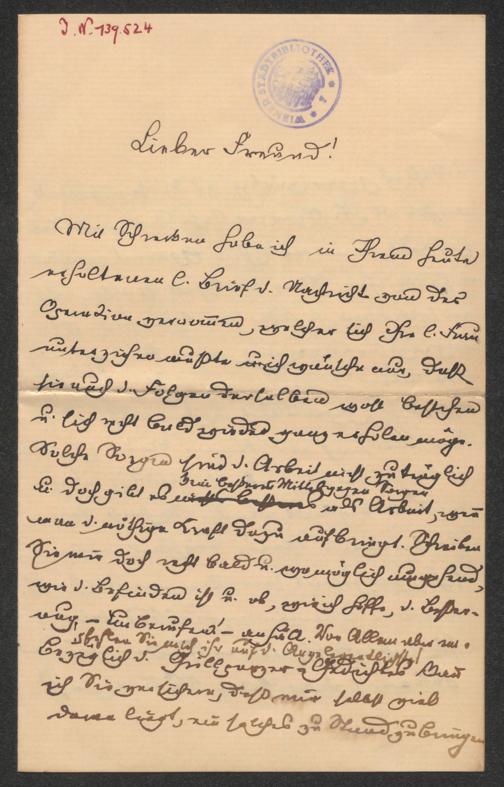 I. N. 139.524
WIENER STADTBIBLIOTHEK
Lieber Freund!
Mit Schrecken habe ich in Ihrem heute
erhaltenen l. Brief d. Nachricht von der
Operation vernommen, welcher sich Ihre l. Frau
unterziehen mußte u. ich wünsche nur, daß
sie auch d. Folgen derselben wohl bestehen
u. sich recht bald wieder ganz erholen möge.
Solche Sorgen sind d. Arbeit nicht zuträglich
kein besseres Mittel gegen Sorgen
u. doch gibt es als Arbeit, wenn
man d. nöthige Kraft dazu aufbringt. Schreiben
Sie mir doch recht bald u. womöglich umgehend,
wie d. Befinden ist u. ob, wie ich hoffe, d. Besser-
ung – unberufen! – anhält. Vor Allem aber em-
pfehlen Sie mich ihr auf d. Angelegentlichste!
Bezüglich d. Grillparzer-Gedichtes kann
ich Sie versichern, daß mir selbst viel
daran liegt, ein solches zu Stand zu bringen